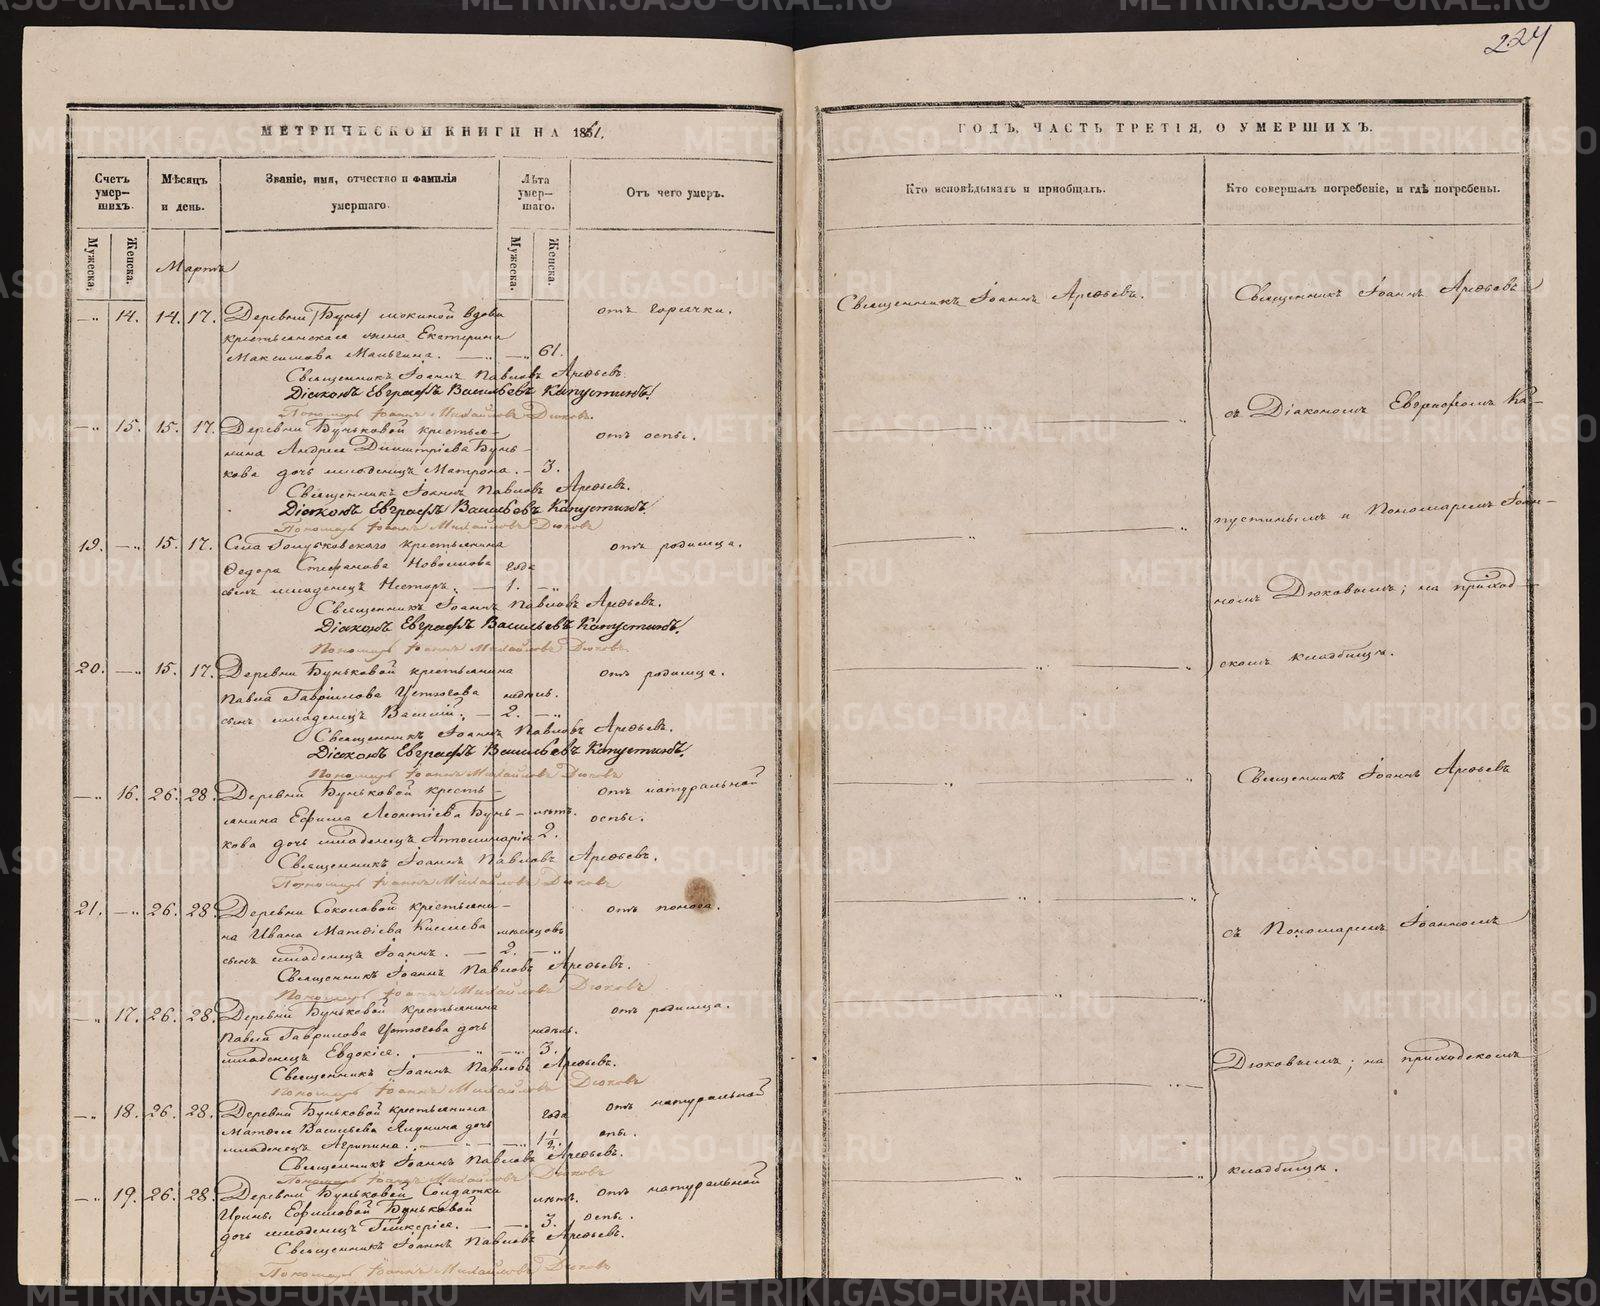 224
МЕТРИЧЕСКОЙ КНИГИ НА 1861.
ГОДЪ, ЧАСТЬ ТРЕТІЯ, О УМЕРШИХЪ.
Счетъ умер-шихъ.
Мѣсяцъ и день.
Званіе, имя, отчество и фамилія умершаго.
Лѣта умер-шаго.
Отъ чего умеръ.
Кто исповѣдывалъ и пріобщалъ.
Кто совершалъ погребеніе, и гдѣ погребены.
Мужеска.
Женска.
Мужеска.
Женска.
Марта
14. 14. 17. Деревни вдова отъ горячки.
крестьянская жена Екатерина
Максимова 61.
Священникъ Іоаннъ Павловъ Арефьевъ.
Діаконъ Евграфъ Васильевъ Капустинъ.
Пономарь Іоаннъ Михайловъ Дюковъ.
15. 15. 17. Деревни Буньковой крестья-
отъ оспы.
нина Андрея Димитріева Бунь-
кова дочь младенецъ Матрона. 3.
Священникъ Іоаннъ Павловъ Арефьевъ.
Діаконъ Евграфъ Васильевъ Капустинъ.
Пономарь Іоаннъ Михайловъ Дюковъ
19. 15. 17. Села крестьянина отъ родимца.
Федора Стефанова года
сынъ младенецъ Несторъ. 1.
Священникъ Іоаннъ Павловъ Арефьевъ.
Діаконъ Евграфъ Васильевъ Капустинъ.
Пономарь Іоаннъ Михайловъ Дюковъ.
20. 15. 17. Деревни Буньковой крестьянина отъ родимца.
Павла Гавріилова Устюгова недѣль.
сынъ младенецъ Василій. 2.
Священникъ Іоаннъ Павловъ Арефьевъ.
Діаконъ Евграфъ Васильевъ Капустинъ.
Пономарь Іоаннъ Михайловъ Дюковъ
16. 26. 28. Деревни Буньковой кресть-
отъ натуральной
янина Ефима Леонтіева Бунь- лѣтъ. оспы.
кова дочь младенецъ 2.
Священникъ Іоаннъ Павловъ Арефьевъ.
Пономарь Іоаннъ Михайловъ Дюковъ
21. 26. 28. Деревни Соколовой крестьяни-
отъ поноса.
на Ивана Матфіева Киселева мѣсяцовъ
сынъ младенецъ Іоаннъ. 2.
Священникъ Іоаннъ Павловъ Арефьевъ.
Пономарь Іоаннъ Михайловъ Дюковъ
17. 26. 28. Деревни Буньковой крестьянина отъ родимца.
Павла Гаврилова Устюгова дочь недѣль.
младенецъ Евдокія. 3.
Священникъ Іоаннъ Павловъ Арефьевъ.
Пономарь Іоаннъ Михайловъ Дюковъ
18. 26. 28. Деревни Буньковой крестьянина года отъ натуральной
Матфея Васильева дочь оспы.
младенецъ Агрипина. 1 1/2.
Священникъ Іоаннъ Павловъ Арефьевъ.
Пономарь Іоаннъ Михайловъ Дюковъ
19. 26. 28. Деревни Буньковой Солдатки лѣтъ. отъ натуральной
Ирины Ефимовой Буньковой оспы.
дочь младенецъ Гликерія. 3.
Священникъ Іоаннъ Павловъ Арефьевъ.
Пономарь Іоаннъ Михайловъ Дюковъ
Священникъ Іоаннъ Арефьевъ.
Священникъ Іоаннъ Арефьевъ
съ Діакономъ Евграфомъ Ка-
пустинымъ и Пономаремъ Іоан-
номъ Дюковымъ; на приход-
скомъ кладбищѣ.
Священникъ Іоаннъ Арефьевъ
съ Пономаремъ Іоанномъ
Дюковымъ; на приходскомъ
кладбищѣ.
METRIKI.GASO-URAL.RU